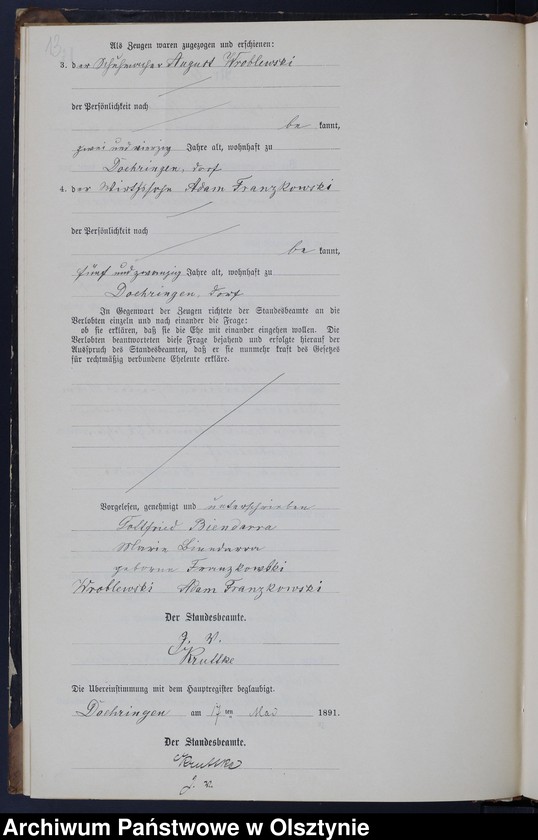 Als Zeugen waren zugezogen und erschienen:
3. der Schuhmacher August Wroblewski
der Persönlichkeit nach
be kannt,
zwei und vierzig Jahre alt, wohnhaft zu
Doehringen, Dorf
4. der Wirthssohn Adam Franzkowski
der Persönlichkeit nach
be kannt,
fünf und zwanzig Jahre alt, wohnhaft zu
Doehringen, Dorf
In Gegenwart der Zeugen richtete der Standesbeamte an die
Verlobten einzeln und nach einander die Frage:
ob sie erklären, daß sie die Ehe mit einander eingehen wollen. Die
Verlobten beantworteten diese Frage bejahend und erfolgte hierauf der
Ausspruch des Standesbeamten, daß er sie nunmehr kraft des Gesetzes
für rechtmäßig verbundene Eheleute erkläre.
Vorgelesen, genehmigt und unterschrieben
Gottfried Biendarra
Marie Biendarra
geborne Franzkowski
Wroblewski Adam Franzkowski
Der Standesbeamte.
J. V.
Kruttke
Die Übereinstimmung mit dem Hauptregister beglaubigt.
Doehringen am 17 ten Mai 1891.
Der Standesbeamte.
Kruttke
J. V.
Archiwum Państwowe w Olsztynie